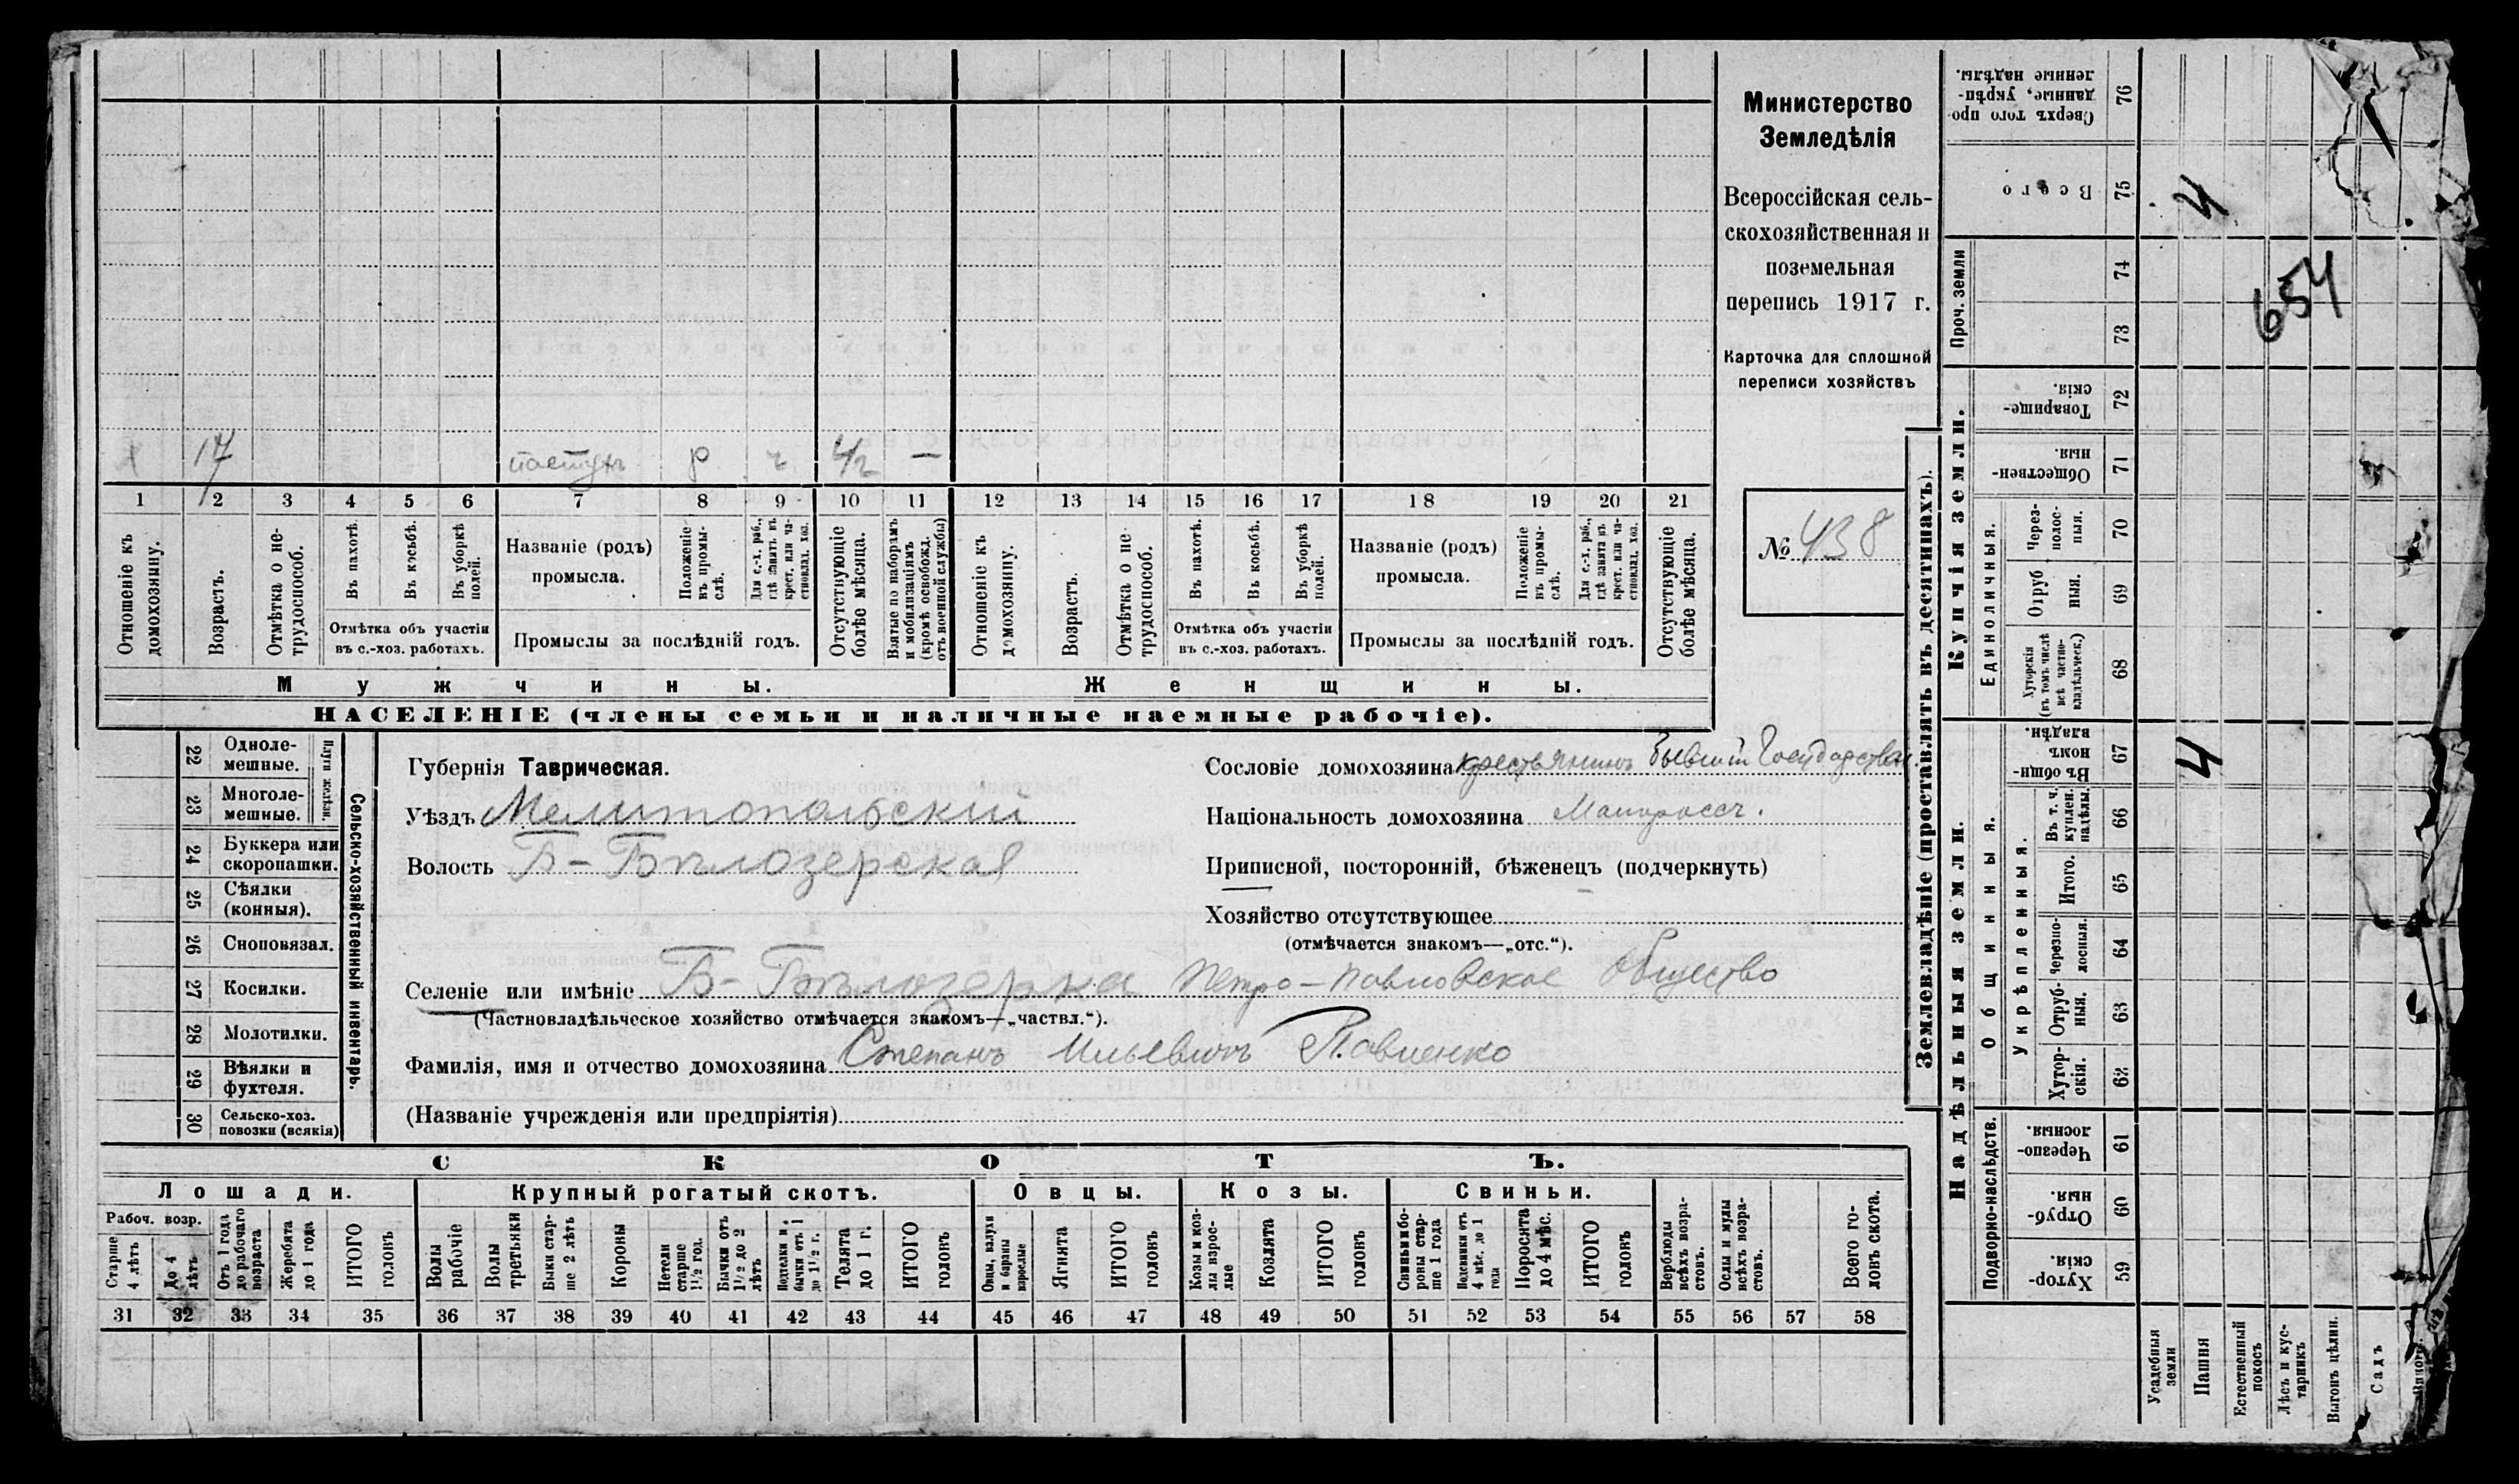 Министерство
Земледѣлія
Всероссійская сель-
скохозяйственная и
поземельная
перепись 1917 г.
Карточка для сплошной
переписи хозяйствъ
№ 438
х 17 пастухъ р ч 4/2 —
1 2 3 4 5 6 7 8 9 10 11 12 13 14 15 16 17 18 19 20 21
Отношеніе къ домохозяину.
Возрастъ.
Отмѣтка о не-трудоспособ.
Въ пахотѣ.
Въ косьбѣ.
Въ уборкѣ полей.
Отмѣтка объ участіи
въ с.-хоз. работахъ.
Названіе (родъ)
промысла.
Положеніе въ промы-слѣ.
Для с.-х. раб., гдѣ занятъ въ крест. или ча-стновлад. хоз.
Промыслы за послѣдній годъ.
Отсутствующіе болѣе мѣсяца.
Взятые по наборамъ и мобилизаціямъ (кромѣ освобожд. отъ военной службы)
Отношеніе къ домохозяину.
Возрастъ.
Отмѣтка о не трудоспособ.
Въ пахотѣ.
Въ косьбѣ.
Въ уборкѣ полей.
Отмѣтка объ участіи
въ с.-хоз. работахъ.
Названіе (родъ)
промысла.
Положеніе въ промы-слѣ.
Для с.-х. раб., гдѣ занята въ крест. или ча-стновлад. хоз.
Промыслы за послѣдній годъ.
Отсутствующіе болѣе мѣсяца.
Мужчины.
Женщины.
НАСЕЛЕНІЕ (члены семьи и наличные наемные рабочіе).
Сельско-хозяйственный инвентарь.
Плуги желѣзн.
22 Одноле-мешные.
23 Многоле-мешные.
24 Буккера или скоропашки.
25 Сѣялки (конныя).
26 Сноповязал.
27 Косилки.
28 Молотилки.
29 Вѣялки и фухтеля.
30 Сельско-хоз. повозки (всякія)
Губернія Таврическая.
Уѣздъ Мелитопольскій
Волость Б-Бѣлозерская
Сословіе домохозяина крестьянинъ бывшій Государствен.
Національность домохозяина Малоросс.
Приписной, посторонній, бѣженецъ (подчеркнуть)
Хозяйство отсутствующее
(отмѣчается знакомъ—„отс.“).
Селеніе или имѣніе Б-Бѣлозерка Петро-Павловское Общество
(Частновладѣльческое хозяйство отмѣчается знакомъ—„частвл.“).
Фамилія, имя и отчество домохозяина Степанъ Ильевичъ Павленко
(Названіе учрежденія или предпріятія)
СКОТЪ.
Лошади.
Крупный рогатый скотъ.
Овцы.
Козы.
Свиньи.
Рабоч. возр.
Старше 4 лѣтъ
До 4 лѣтъ
Отъ 1 года до рабочаго возраста
Жеребята до 1 года
ИТОГО головъ
Волы рабочіе
Волы третьяки
Быки стар-ше 2 лѣтъ
Коровы
Нетели старше 1½ год.
Бычки отъ 1½ до 2 лѣтъ
Подтелки и бычки отъ 1 до 1½ г.
Телята до 1 г.
ИТОГО головъ
Овцы, валухи и бараны взрослые
Ягнята
ИТОГО головъ
Козы и коз-лы взрос-лые
Козлята
ИТОГО головъ
Свиньи и бо-ровы стар-ше 1 года
Подсвинки отъ 4 мѣс. до 1 года
Поросята до 4 мѣс.
ИТОГО головъ
Верблюды всѣхъ возра-стовъ.
Ослы и мулы всѣхъ возра-стовъ.
Всего го-ловъ скота.
31 32 33 34 35 36 37 38 39 40 41 42 43 44 45 46 47 48 49 50 51 52 53 54 55 56 57 58
Землевладѣніе (проставлять въ десятинахъ).
Купчія земли.
Надѣльныя земли.
Сверхъ того про-данные, укрѣп-ленные надѣлы. 76
Всего 75 4
Проч. земли 74 73
654
Товарище-скія. 72
Обществен-ныя. 71
Единоличныя.
Через-полос-ныя. 70
Отруб ныя. 69
Хуторскія (въ томъ числѣ всѣ частно-владѣльческ.) 68
Общинныя.
Въ общи-номъ владѣн. 67 4
Укрѣпленныя.
Въ т. ч. куплен. надѣлы. 66
Итого. 65
Черезпо-лосныя. 64
Отруб-ныя. 63
Хутор-скія. 62
Подворно-наслѣдств.
Черезпо-лосныя. 61
Отруб-ныя. 60
Хутор-скія. 59
Усадебныя земли
Пашня
Естественный покосъ
Лѣсъ и кус-тарникъ
Выгонъ цѣлин.
Садъ